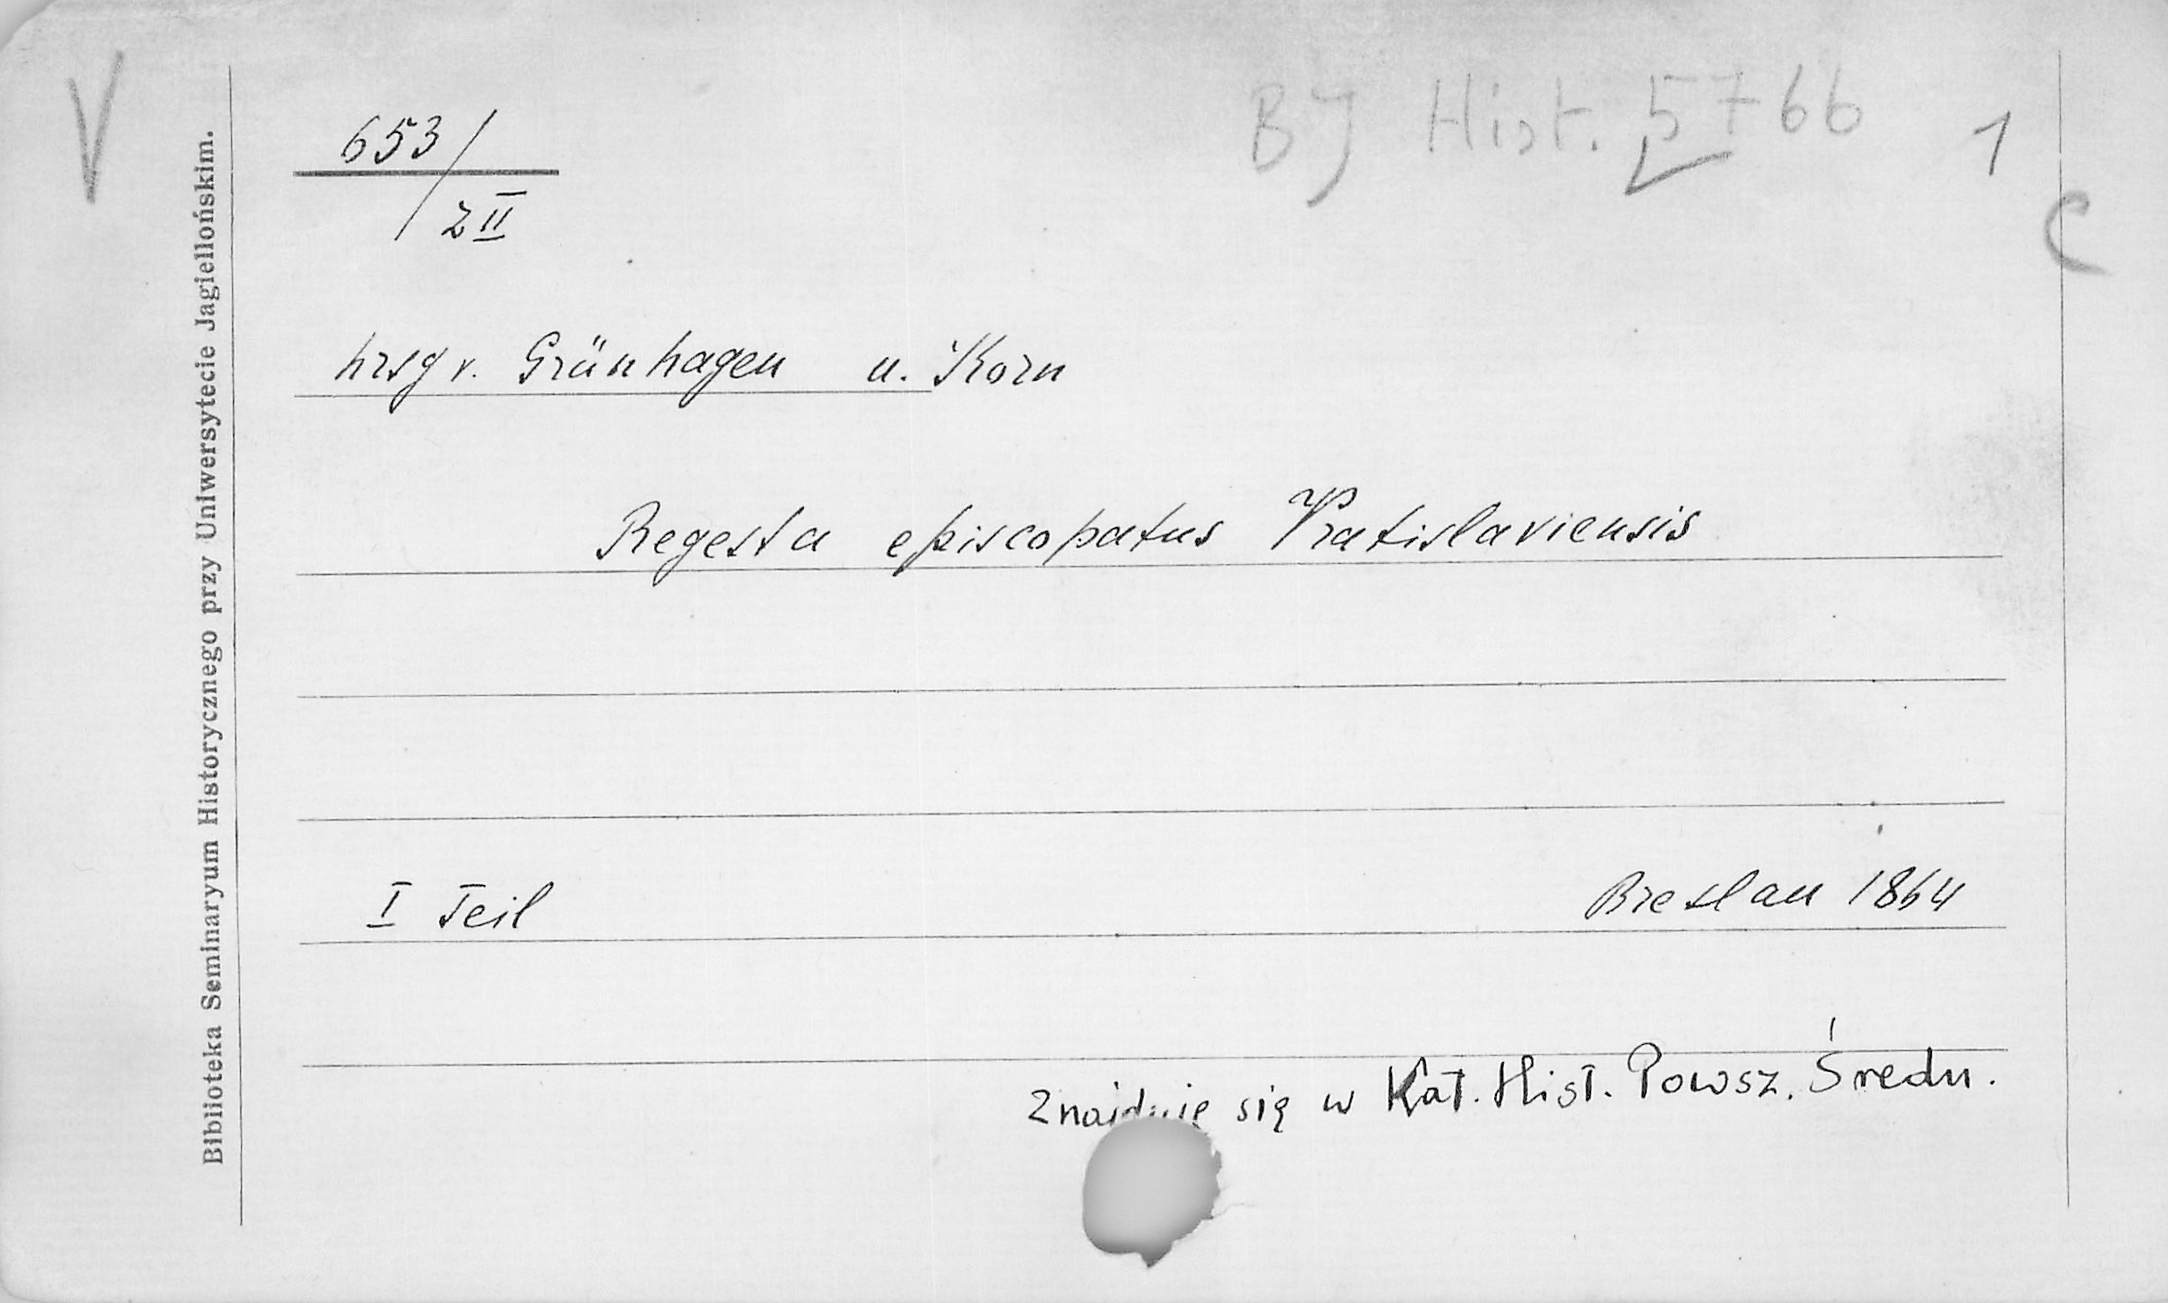 V
BJ Hist. 5766
1
C
653/
z II
hrsg v. Grünhagen u. Korn
Regesta episcopatus Vratislaviensis
I Teil
Breslau 1864
znajduje się w Kat. Hist. Powsz. Średn.
Biblioteka Seminaryum Historycznego przy Uniwersytecie Jagiellońskim.